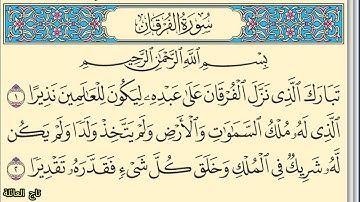 سُورَةُ الفُرْقَانِ
بِسْمِ اللَّهِ الرَّحْمَٰنِ الرَّحِيمِ
تَبَارَكَ الَّذِي نَزَّلَ الْفُرْقَانَ عَلَىٰ عَبْدِهِۦ لِيَكُونَ لِلْعَالَمِينَ نَذِيرًا ١
الَّذِي لَهُۥ مُلْكُ السَّمَٰوَٰتِ وَالْأَرْضِ وَلَمْ يَتَّخِذْ وَلَدًا وَلَمْ يَكُن
لَّهُۥ شَرِيكٌ فِي الْمُلْكِ وَخَلَقَ كُلَّ شَيْءٍ فَقَدَّرَهُۥ تَقْدِيرًا ٢
تاج العائلة